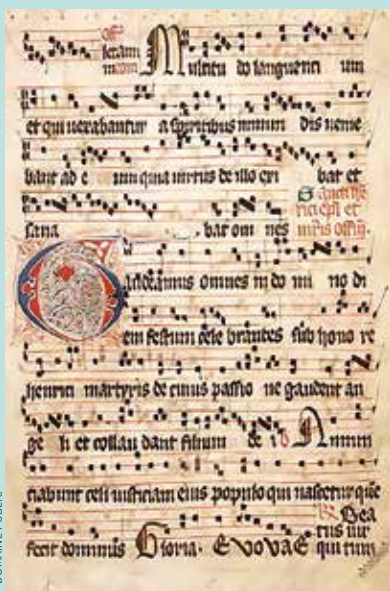 Multitu do languenti um
et qui uexabantur a spiritibus immun dis ueme
bant ad e um quia uirtus de illo exi bat et
sana bat om nes
Gaudeamus omnes in do mi no di
em festum cele brantes sub hono re
henrici martyris de cuius passio ne gaudent an
ge li et collau dant filium de i Annun
ciabunt celi iusticiam eius populo qui nascetur que
Bea
fecit dominus Gloria. Evovae tus uir
qui tim
DOMAINE PUBLIC